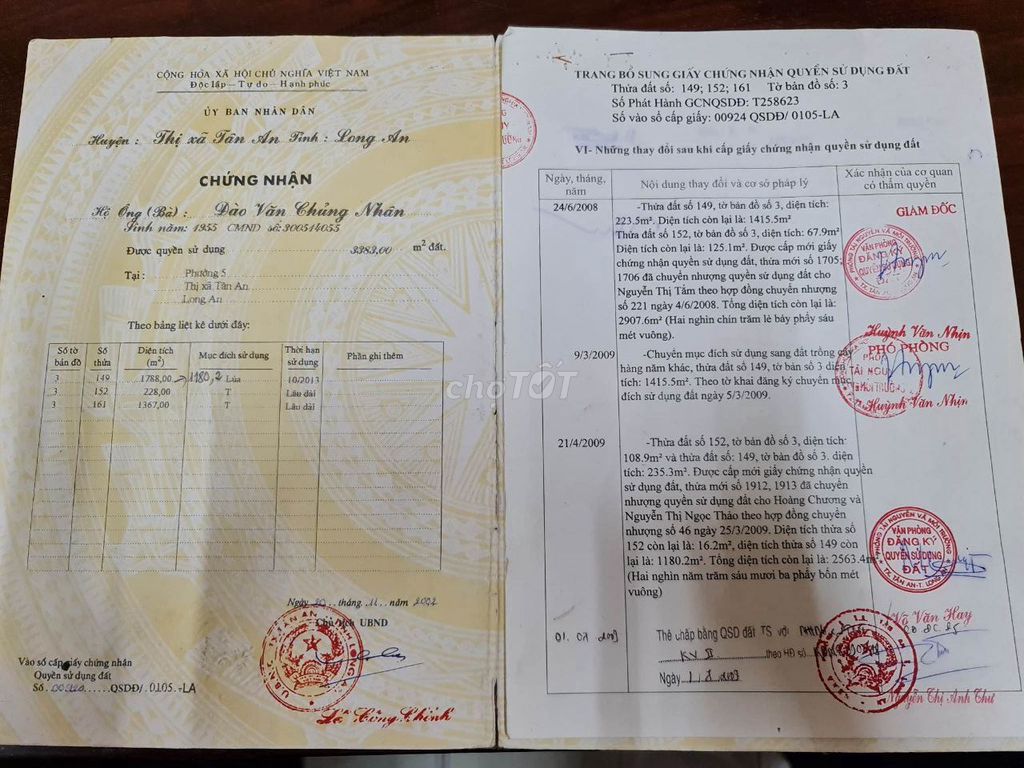 CỘNG HÒA XÃ HỘI CHỦ NGHĨA VIỆT NAM
Độc lập - Tự do - Hạnh phúc
ỦY BAN NHÂN DÂN
Huyện : Thị xã Tân An Tỉnh : Long An
CHỨNG NHẬN
Hộ Ông (Bà) : Đào Văn Chủng Nhân
Sinh năm: 1955 CMND số: 300514055
Được quyền sử dụng 3383,00 m² đất.
Tại : Phường 5
Thị xã Tân An
Long An
Theo bảng liệt kê dưới đây:
Số tờ bản đồ Số thửa Diện tích (m²) Mục đích sử dụng Thời hạn sử dụng Phần ghi thêm
3 149 1788,00 1180,2 Lúa 10/2013
3 152 228,00 T Lâu dài
3 161 1367,00 T Lâu dài
Ngày 20 tháng 11 năm 2002
Chủ tịch UBND
Vào sổ cấp giấy chứng nhận
Quyền sử dụng đất
Số QSDĐ/ 0105-LA
Lê Công Chính
TRANG BỔ SUNG GIẤY CHỨNG NHẬN QUYỀN SỬ DỤNG ĐẤT
Thửa đất số: 149; 152; 161 Tờ bản đồ số: 3
Số Phát Hành GCNQSDĐ: T258623
Số vào số cấp giấy: 00924 QSDĐ/ 0105-LA
VI- Những thay đổi sau khi cấp giấy chứng nhận quyền sử dụng đất
Ngày, tháng, năm Nội dung thay đổi và cơ sở pháp lý Xác nhận của cơ quan có thẩm quyền
24/6/2008 -Thửa đất số 149, tờ bản đồ số 3, diện tích:
223.5m². Diện tích còn lại là: 1415.5m²
Thửa đất số 152, tờ bản đồ số 3, diện tích: 67.9m²
Diện tích còn lại là: 125.1m². Được cấp mới giấy
chứng nhận quyền sử dụng đất, thửa mới số 1705;
1706 đã chuyển nhượng quyền sử dụng đất cho
Nguyễn Thị Tầm theo hợp đồng chuyển nhượng
số 221 ngày 4/6/2008. Tổng diện tích còn lại là:
2907.6m² (Hai nghìn chín trăm lẻ bảy phẩy sáu
mét vuông).
GIÁM ĐỐC
VĂN PHÒNG
ĐĂNG KÝ
QUYỀN SỬ DỤNG
Huỳnh Văn Nhịn
9/3/2009 -Chuyển mục đích sử dụng sang đất trồng cây
hàng năm khác, thửa đất số 149, tờ bản đồ số 3 diện
tích: 1415.5m². Theo tờ khai đăng ký chuyển mục
đích sử dụng đất ngày 5/3/2009.
PHÓ PHÒNG
Huỳnh Văn Nhịn
choTỐT
21/4/2009 -Thửa đất số 152, tờ bản đồ số 3, diện tích:
108.9m² và thửa đất số: 149, tờ bản đồ số 3. diện
tích: 235.3m². Được cấp mới giấy chứng nhận quyền
sử dụng đất, thửa mới số 1912, 1913 đã chuyển
nhượng quyền sử dụng đất cho Hoàng Chương và
Nguyễn Thị Ngọc Thảo theo hợp đồng chuyển
nhượng số 46 ngày 25/3/2009. Diện tích thửa số
152 còn lại là: 16.2m², diện tích thửa số 149 còn
lại là: 1180.2m². Tổng diện tích còn lại là: 2563.4m²
(Hai nghìn năm trăm sáu mươi ba phẩy bốn mét
vuông)
PHÒNG TÀI NGUYÊN VÀ MÔI TRƯỜNG
VĂN PHÒNG
ĐĂNG KÝ
QUYỀN SỬ DỤNG
ĐẤT
TX. TÂN AN-T. LONG AN
Võ Văn Hay
Thế chấp bằng QSD đất TS với
theo HĐ số
Ngày
Nguyễn Thị Anh Thư